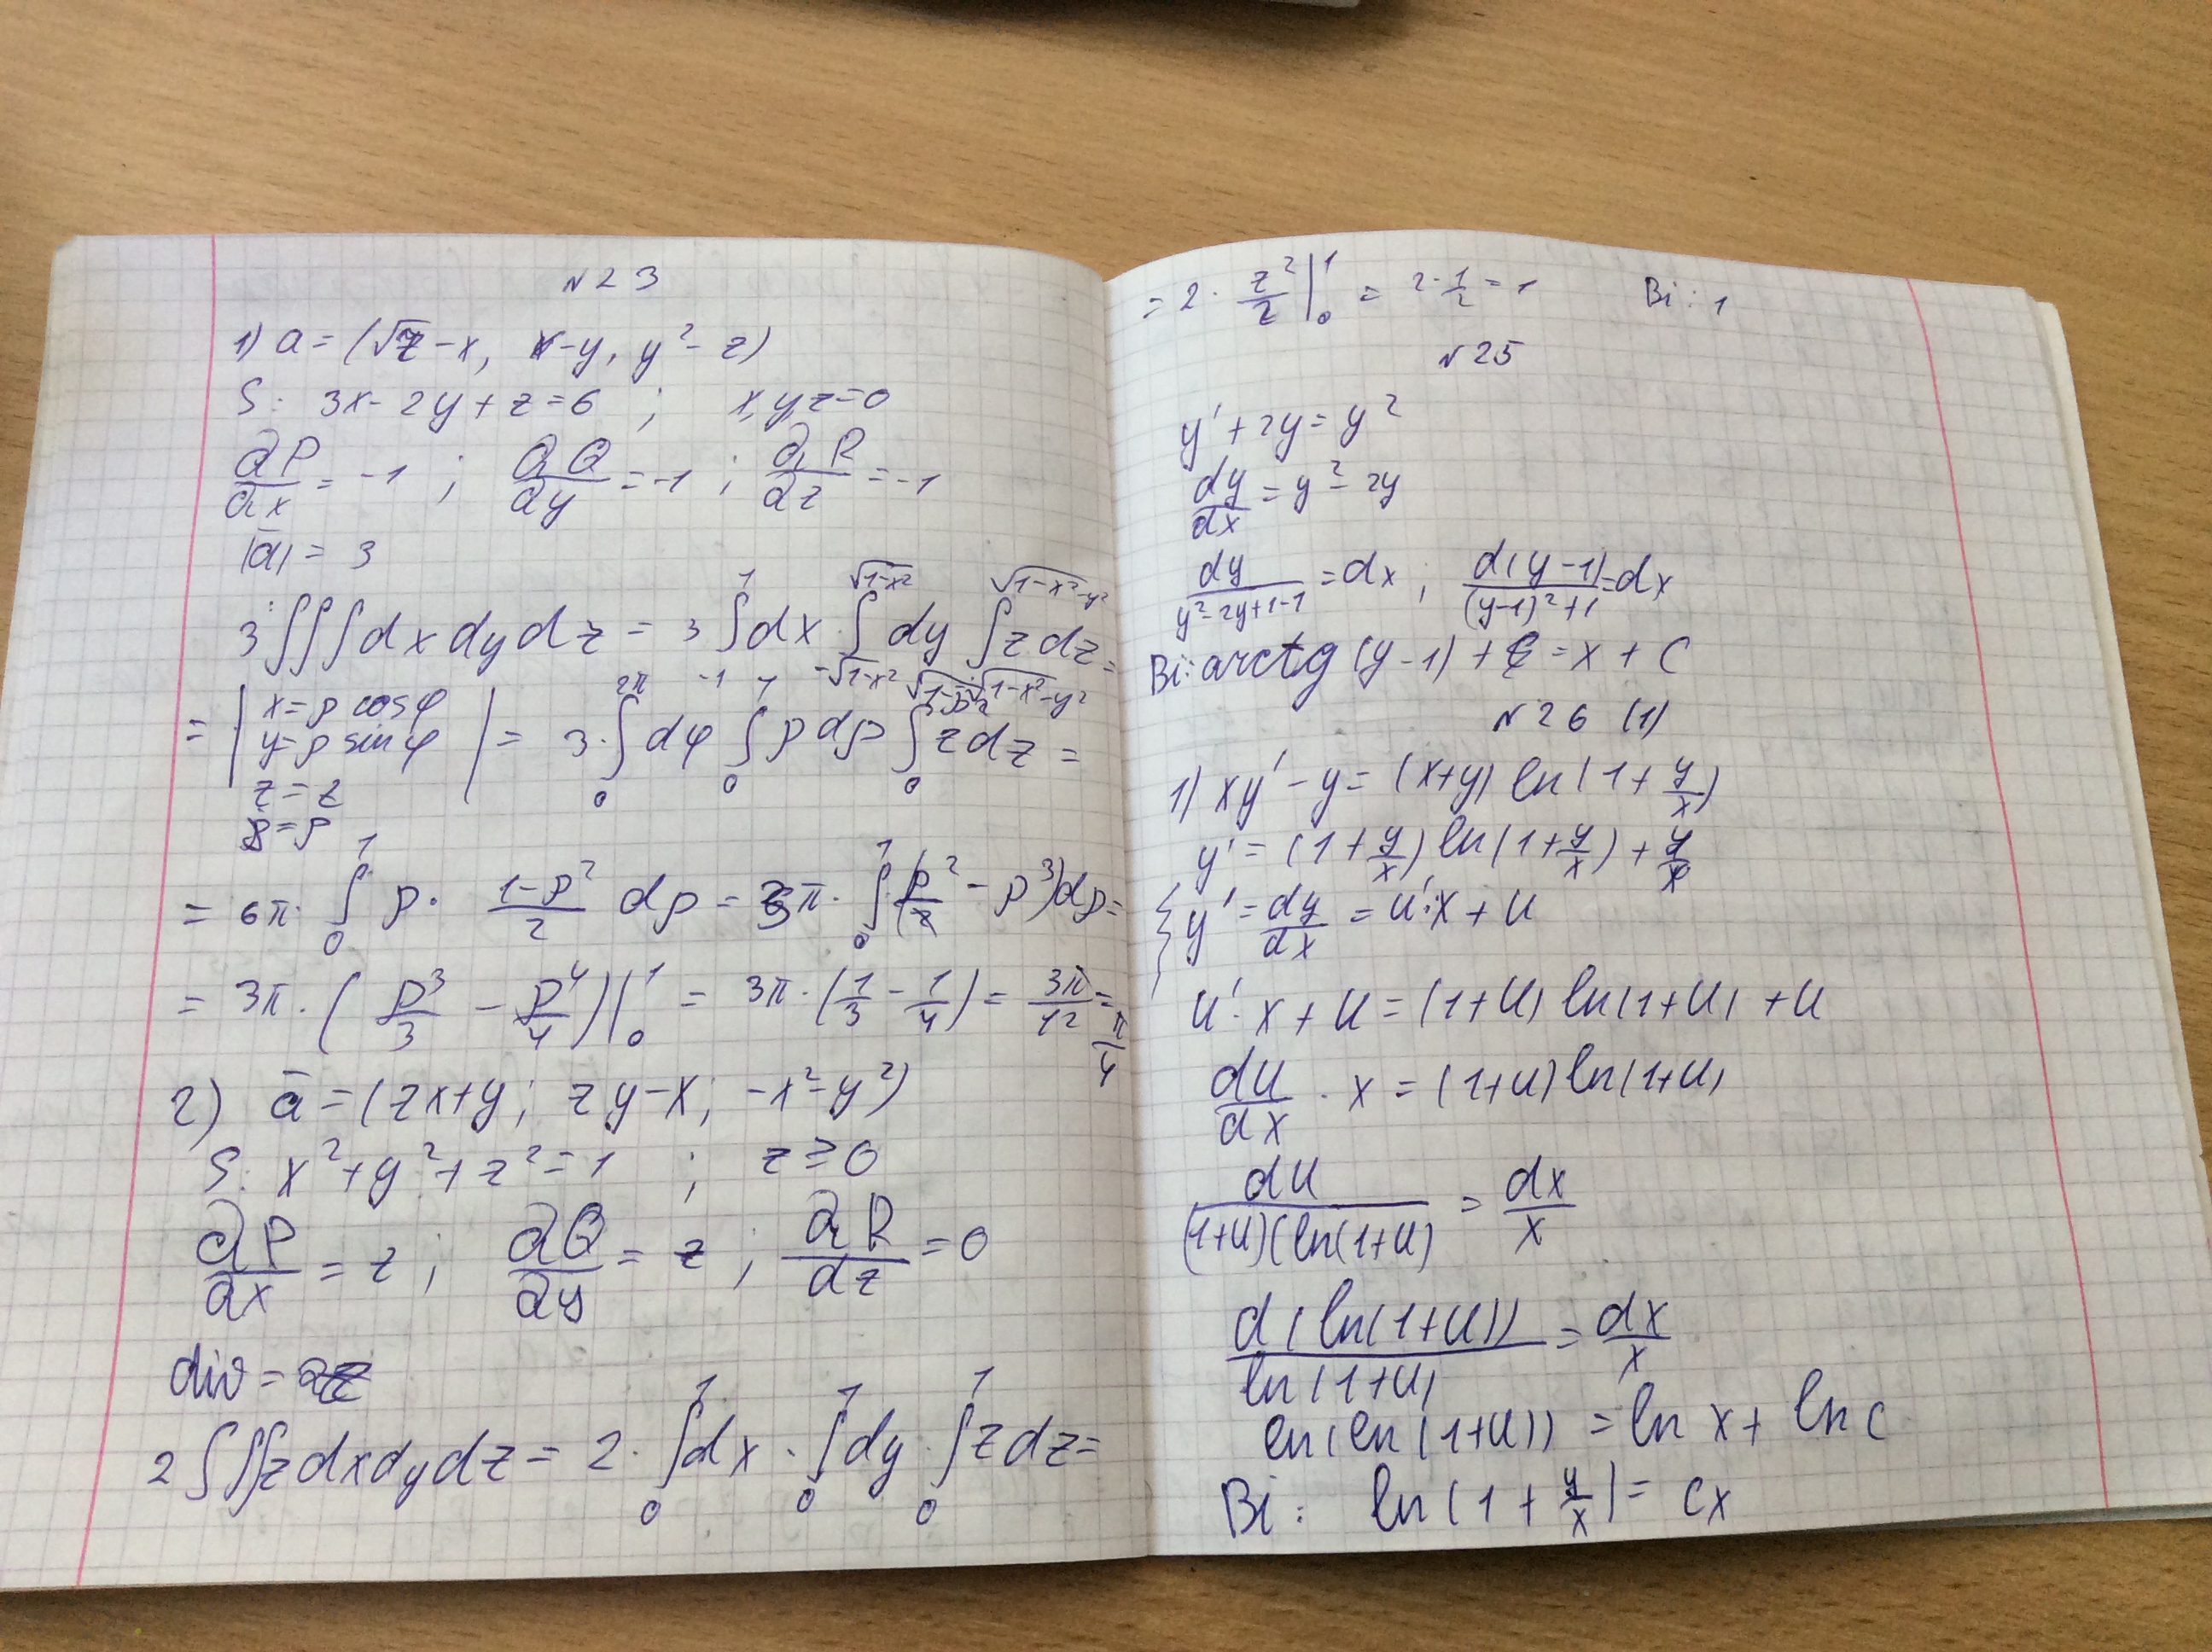 N 23
1) a = (√z - x, x - y, y² - z)
S: 3x - 2y + z = 6 ; x,y,z=0
∂P/∂x = -1 ; ∂Q/∂y = -1 ; ∂R/∂z = -1
|a̅| = 3
3·∫∫∫dxdydz = 3 ∫₋₁¹ dx · ∫_{-√(1-x²)}^{√(1-x²)} dy ∫_{-√(1-x²-y²)}^{√(1-x²-y²)} z dz =
= | x = ρ cos φ
y = ρ sin φ
z = z
= ρ | = 3·∫₀^{2π} dφ ∫₀¹ ρ dρ ∫₀^{√(1-ρ²)} z dz =
= 6π · ∫₀¹ ρ · (1-ρ²)/2 dρ = 3π · ∫₀¹ (ρ² - ρ³)dρ =
= 3π · (ρ³/3 - ρ⁴/4)|₀¹ = 3π · (1/3 - 1/4) = 3π/12 = π/4
2) a̅ = (zx+y; zy-x; -x²-y²)
S: x² + y² + z² = 1 ; z ≥ 0
∂P/∂x = z ; ∂Q/∂y = z ; ∂R/∂z = 0
div = 2z
2∫∫∫z dxdydz = 2 · ∫₀¹ dx · ∫₀¹ dy · ∫₀¹ z dz =
= 2 · z²/2 |₀¹ = 2·1/2 = 1 Ві: 1
N 25
y' + 2y = y²
dy/dx = y² - 2y
dy/(y²-2y+1-1) = dx ; d(y-1)/((y-1)²+1) = dx
Ві: arctg (y-1) + C = x + C
N 26 (1)
1) xy' - y = (x+y) ln(1 + y/x)
y' = (1 + y/x) ln(1 + y/x) + y/x
{ y' = dy/dx = u'·x + u
u'·x + u = (1+u) ln(1+u) + u
du/dx · x = (1+u) ln(1+u)
du/((1+u)(ln(1+u)) = dx/x
d(ln(1+u))/ln(1+u) = dx/x
ln(ln(1+u)) = ln x + ln c
Ві: ln(1 + y/x) = cx